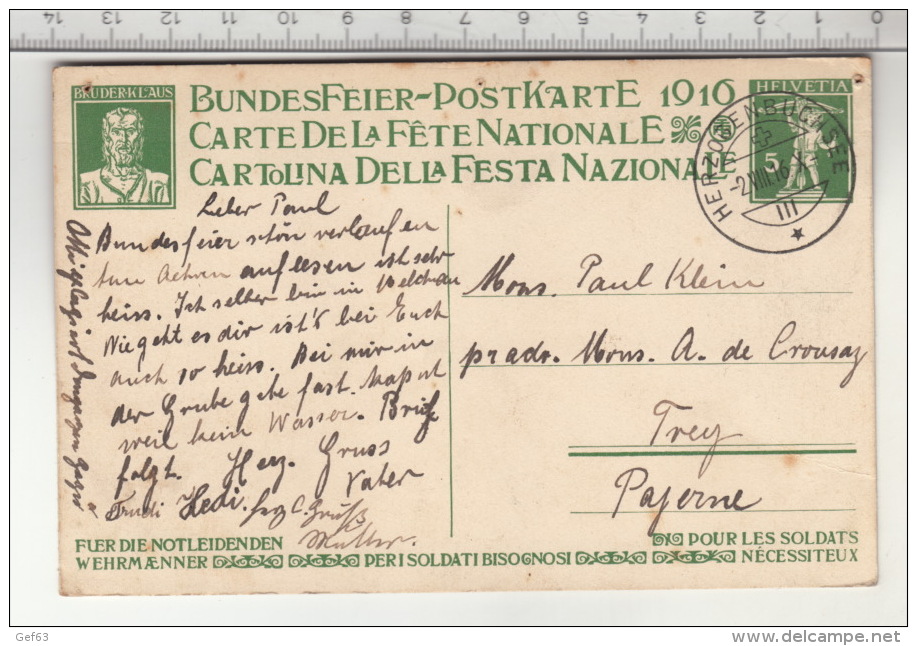 14 13 12 11 10 9 8 7 6 5 4 3 2 1 0
BRUDER·KLAUS
BUNDESFEIER-POSTKARTE 1916
CARTE DE LA FÊTE NATIONALE
CARTOLINA DELLA FESTA NAZIONALE
HELVETIA
5
HERZOGENBUCHSEE
-2.VIII.16.X-
III
Lieber Paul
Bundesfeier schön verlaufen
auflesen ist sehr
heiss. Ich selber bin in
Wie geht es dir ist's bei Euch
auch so heiss. Bei mir in
der Grube gehe fast kaput
weil kein Wasser. Brief
folgt. Herz. Gruss
Vater
Trudi Hedi. Gruß
Mutter.
Mons. Paul Klein
pr adr. Mons. A. de Crousaz
Trey
Payerne
FUER DIE NOTLEIDENDEN
WEHRMÆNNER
PER I SOLDATI BISOGNOSI
POUR LES SOLDATS
NÉCESSITEUX
Gef63
www.delcampe.net